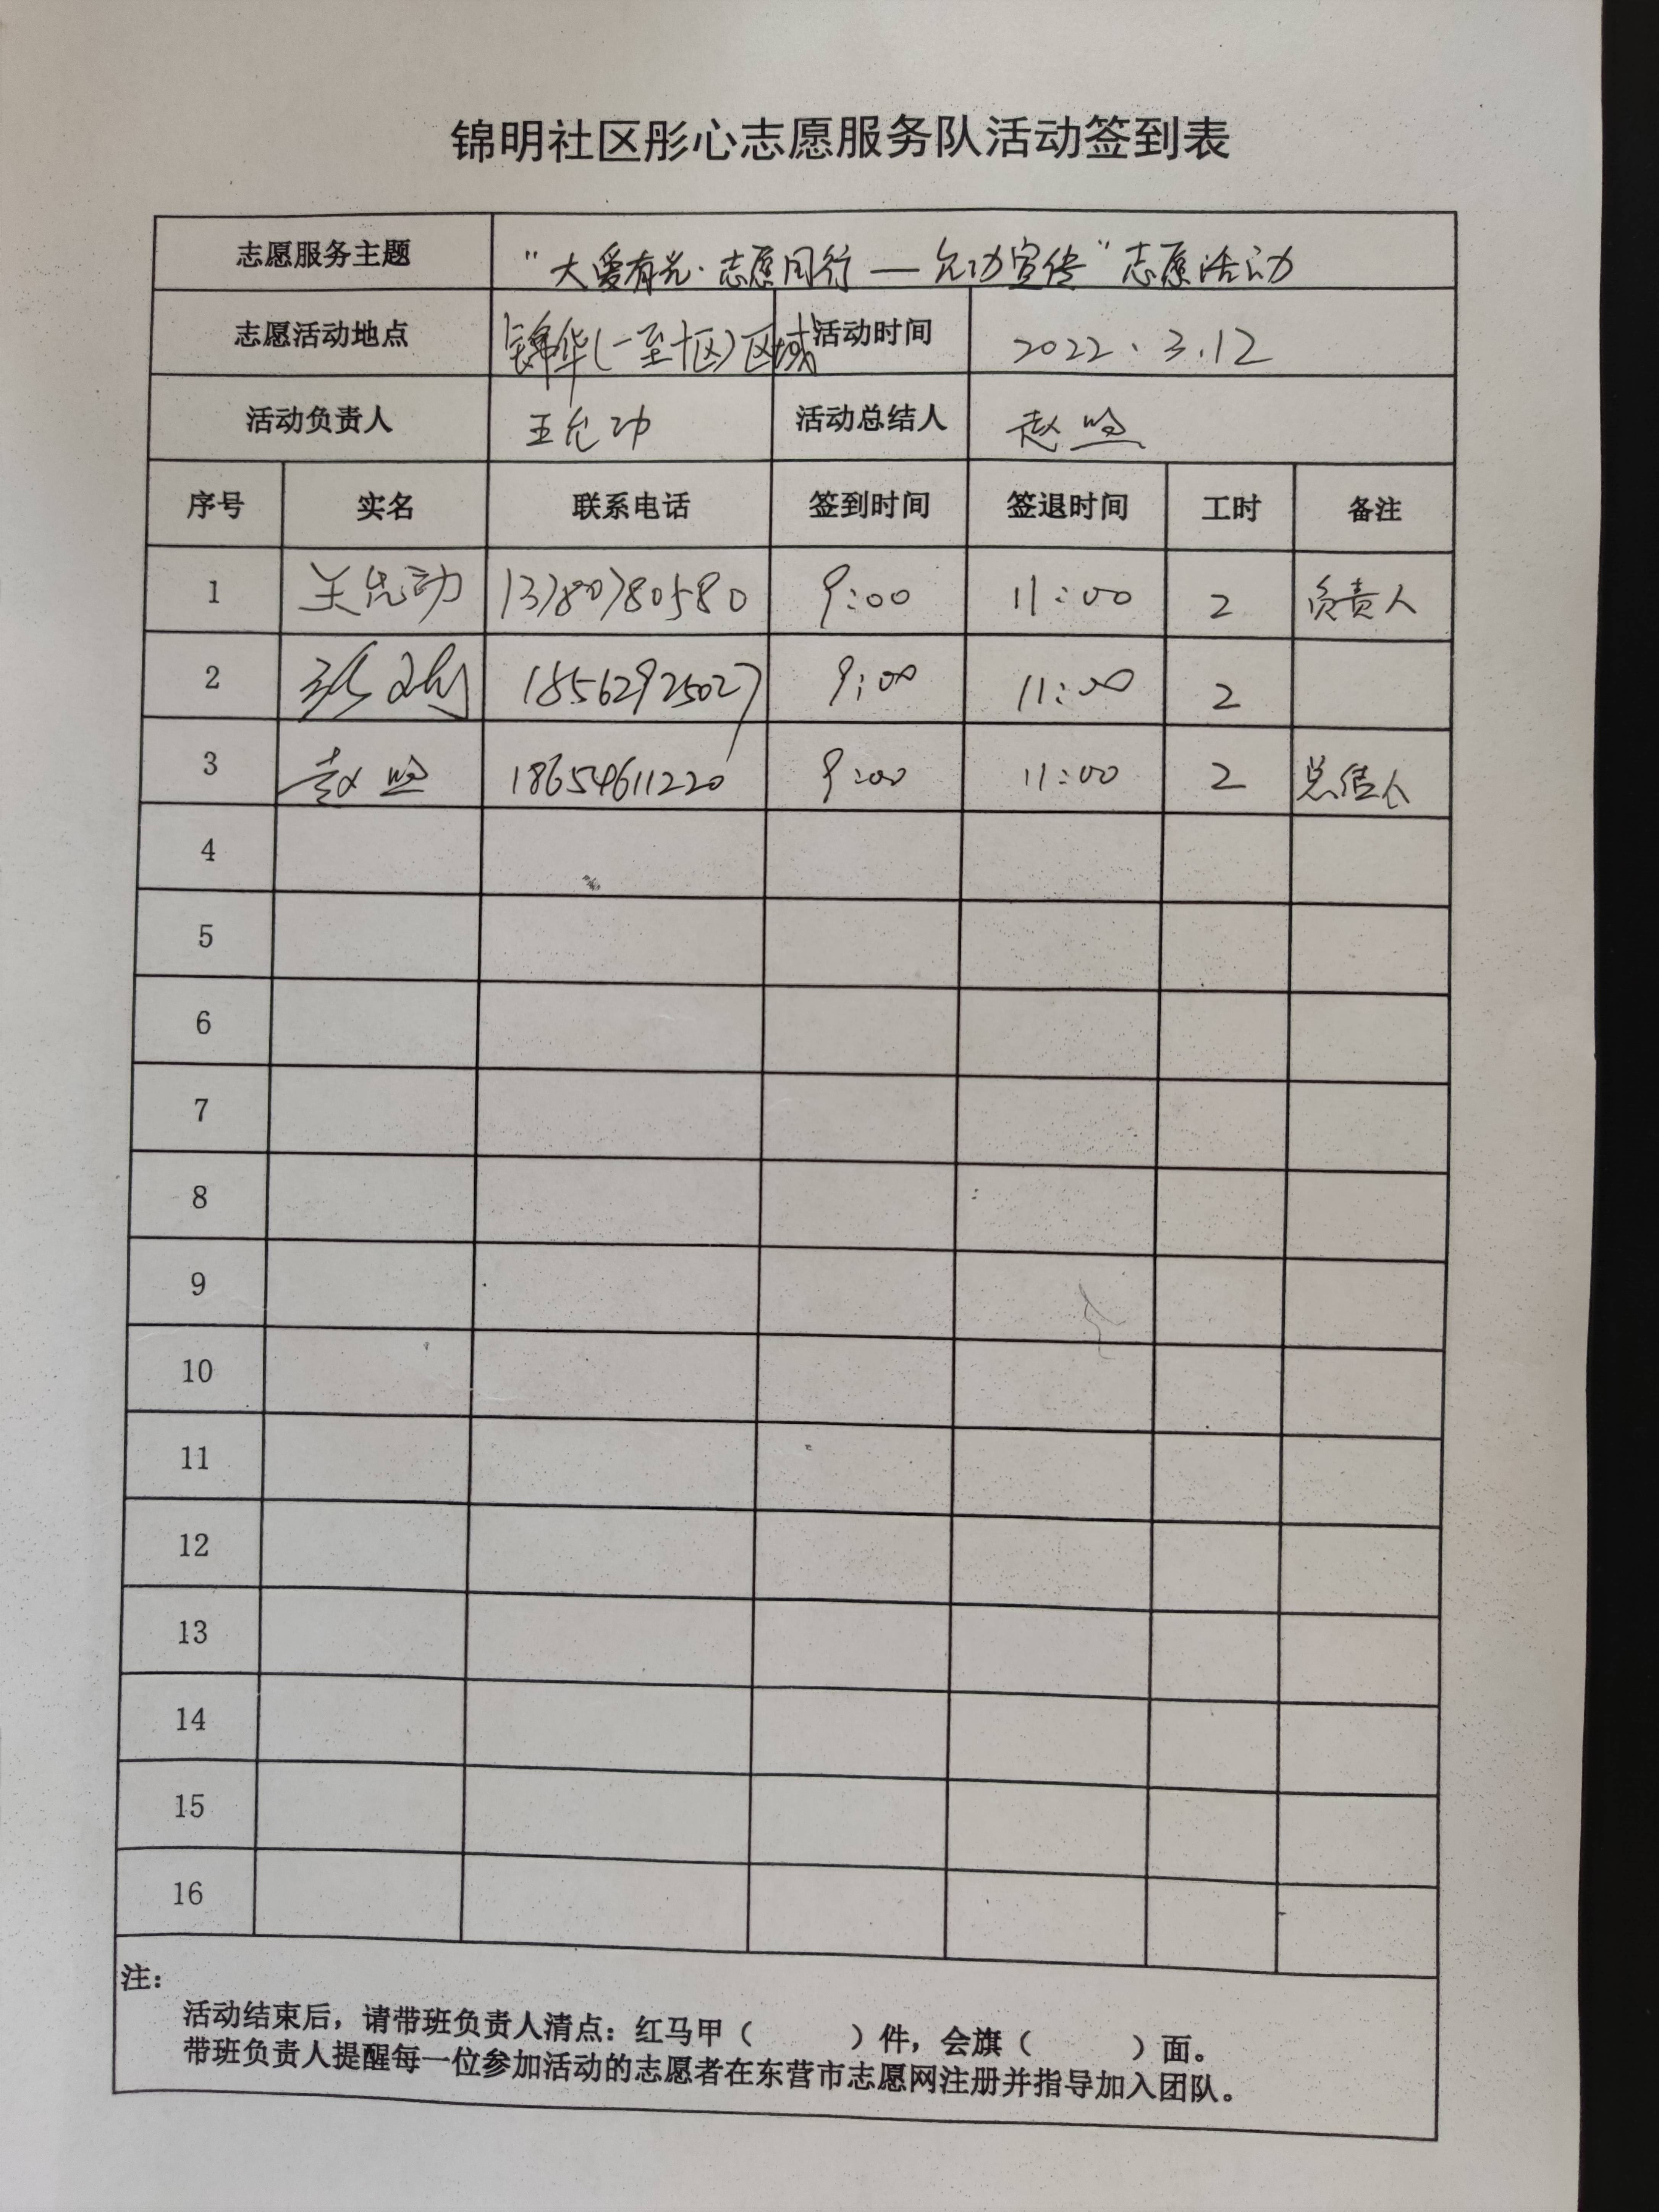 锦明社区彤心志愿服务队活动签到表
志愿服务主题 "大爱有光·志愿同行—允功宣传"志愿活动
志愿活动地点 锦华(一至十区)区域 活动时间 2022.3.12
活动负责人 王允功 活动总结人 赵
序号 实名 联系电话 签到时间 签退时间 工时 备注
1 王允功 13780780580 9:00 11:00 2 负责人
2 18562925027 9:00 11:00 2
3 赵 18654611220 9:00 11:00 2 总结人
4
5
6
7
8
9
10
11
12
13
14
15
16
注:
活动结束后，请带班负责人清点：红马甲（ ）件，会旗（ ）面。
带班负责人提醒每一位参加活动的志愿者在东营市志愿网注册并指导加入团队。